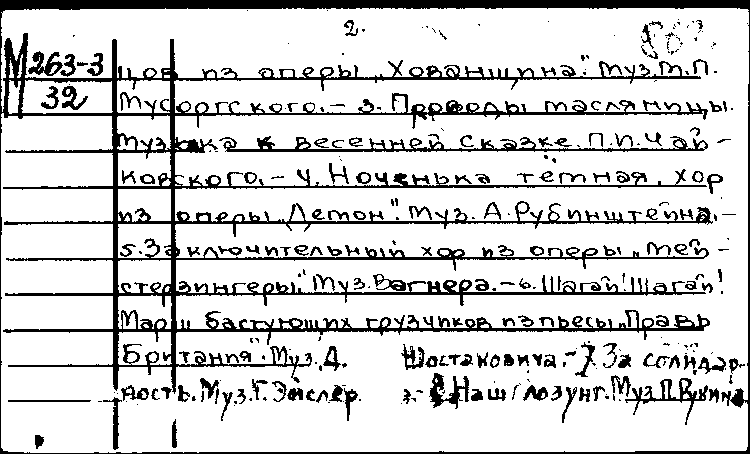 2.
М 263-3
32
цов из оперы „Хованщина". Муз. М.П.
Мусоргского. - 3. Проводы масляницы.
Музыка к весенней сказке. П.И. Чай-
ковского. - 4. Ноченька тёмная, хор
из оперы „Демон". Муз. А. Рубинштейна. -
5. Заключительный хор из оперы „Мей-
стерзингеры". Муз. Вагнера. - 6. Шагай! Шагай!
Марш бастующих грузчиков из пьесы „Правь
Британия". Муз. Д. Шостаковича. - 7. За солидар-
ность. Муз. Г. Эйслер. - 8. Наш лозунг. Муз. П.